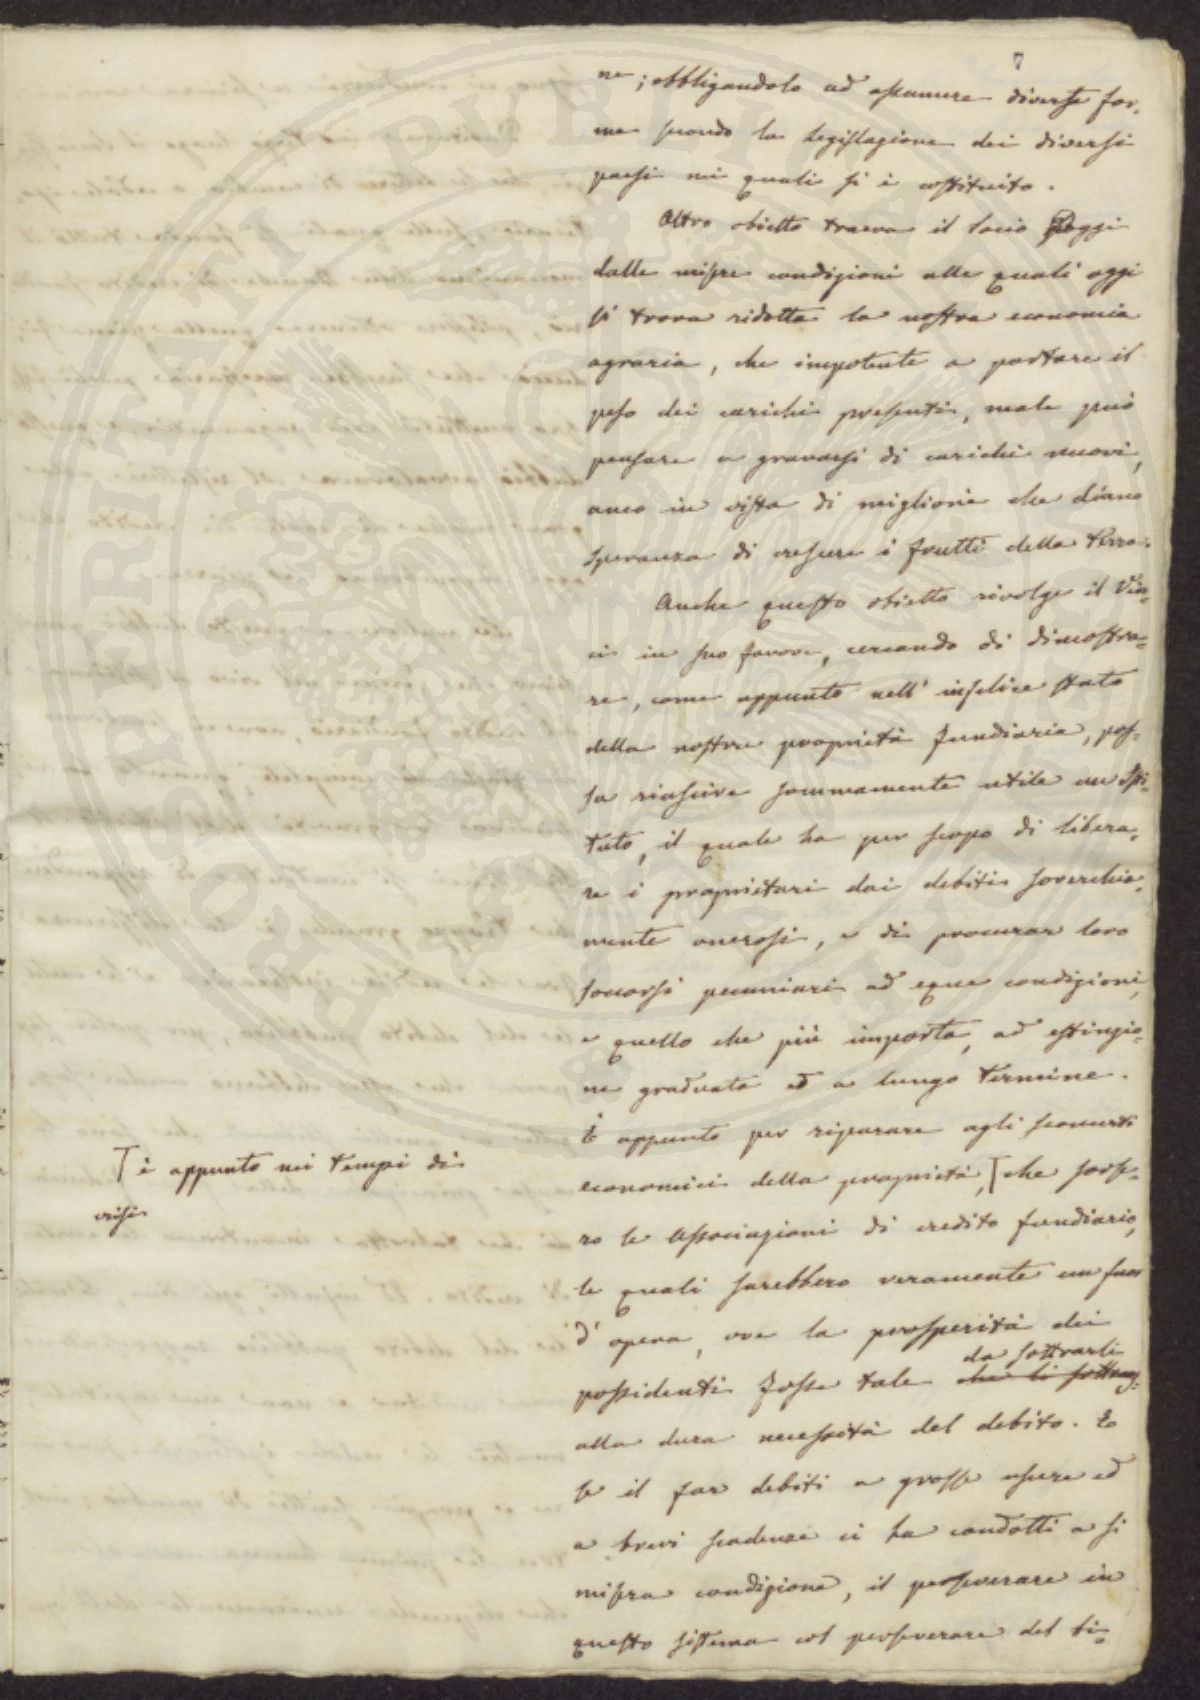 7
ne; obbligandolo ad assumere diverse for-
me secondo la legislazione dei diversi
paesi nei quali si è costituito.
Altro obietto traeva il socio Poggi
dalle misere condizioni alle quali oggi
si trova ridotta la nostra economia
agraria, che impotente a portare il
peso dei carichi presenti, male può
pensare a gravarsi di carichi nuovi,
anco in vista di migliorie che diano
speranza di crescere i frutti della terra.
Anche questo obietto rivolge il Vin-
ci in suo favore, cercando di dimostra-
re, come appunto nell' infelice stato
della nostra proprietà fundiaria, pos-
sa riuscire sommamente utile un Isti-
tuto, il quale ha per scopo di libera-
re i proprietari dai debiti soverchia-
mente onerosi, e di procurar loro
soccorsi pecuniari ad eque condizioni,
e quello che più importa, ad estinzio-
ne graduata ed a lungo termine.
È appunto per riparare agli sconcerti
economici della proprietà, che sorse-
ro le associazioni di credito fundiario,
le quali sarebbero veramente un fuor
d' opera, ove la prosperità dei
da sottrarli
possidenti fosse tale che li
alla dura necessità del debito. E
se il far debiti a grosse usure ed
a brevi scadenze ci ha condotti a sì
misera condizione, il perseverare in
questo sistema col perseverare del bi-
è appunto nei tempi di
crisi